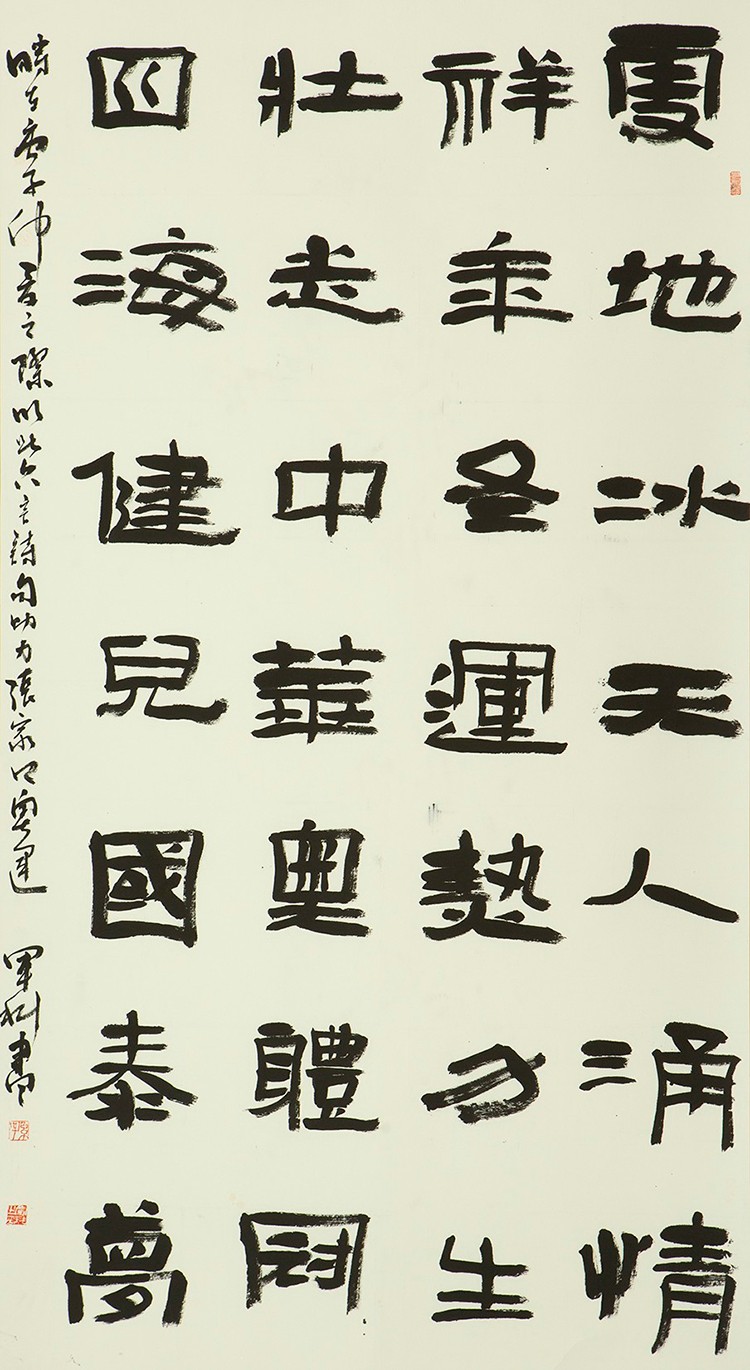 雪地冰天人涌情
祥年冬運熱勿生
壯志中華奧體鬪
四海健兒國泰夢
時在庚子仲春之際以此六言詩句助力張家口奧運
軍 書